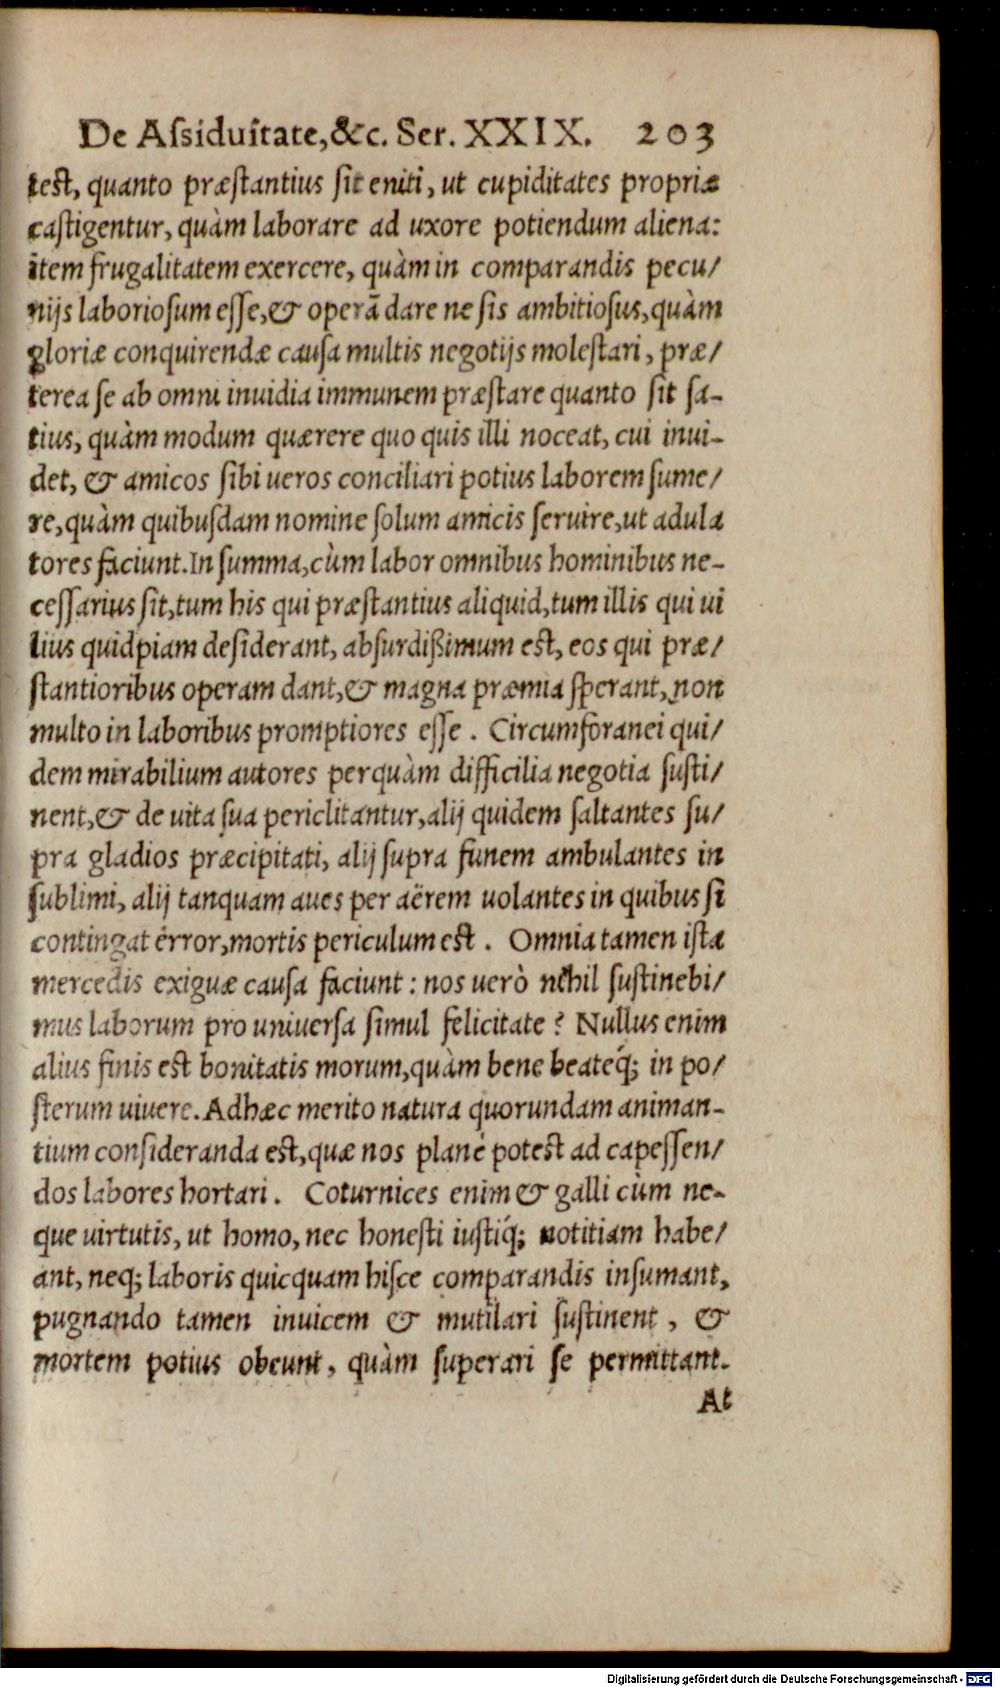 De Aſsiduitate,&c. Ser. XXIX. 203
teſt, quanto præſtantius ſit eniti, ut cupiditates propriæ
caſtigentur, quàm laborare ad uxore potiendum aliena:
item frugalitatem exercere, quàm in comparandis pecu/
nijs laborioſum eſſe,& operā dare ne ſis ambitioſus,quàm
gloriæ conquirendæ cauſa multis negotijs moleſtari, præ/
terea ſe ab omni inuidia immunem præſtare quanto ſit ſa-
tius, quàm modum quærere quo quis illi noceat, cui inui-
det, & amicos ſibi ueros conciliari potius laborem ſume/
re,quàm quibuſdam nomine ſolum amicis ſeruire,ut adula
tores faciunt.In ſumma,cùm labor omnibus hominibus ne-
ceſſarius ſit,tum his qui præſtantius aliquid,tum illis qui ui
lius quidpiam deſiderant, abſurdißimum eſt, eos qui præ/
ſtantioribus operam dant,& magna præmia ſperant, non
multo in laboribus promptiores eſſe . Circumforanei qui/
dem mirabilium autores perquàm difficilia negotia ſuſti/
nent,& de uita ſua periclitantur,alij quidem ſaltantes ſu/
pra gladios præcipitati, alij ſupra funem ambulantes in
ſublimi, alij tanquam aues per aërem uolantes in quibus ſi
contingat error,mortis periculum eſt . Omnia tamen iſta
mercedis exiguæ cauſa faciunt : nos uerò nihil ſuſtinebi/
mus laborum pro uniuerſa ſimul felicitate ? Nullus enim
alius finis eſt bonitatis morum,quàm bene beateq́; in po/
ſterum uiuere.Adhæc merito natura quorundam animan-
tium conſideranda eſt,quæ nos planè poteſt ad capeſſen/
dos labores hortari . Coturnices enim & galli cùm ne-
que uirtutis, ut homo, nec honeſti iuſtiq́; notitiam habe/
ant, neq; laboris quicquam hiſce comparandis inſumant,
pugnando tamen inuicem & mutilari ſuſtinent , &
mortem potius obeunt, quàm ſuperari ſe permittant.
At
Digitalisierung gefördert durch die Deutsche Forschungsgemeinschaft - DFG